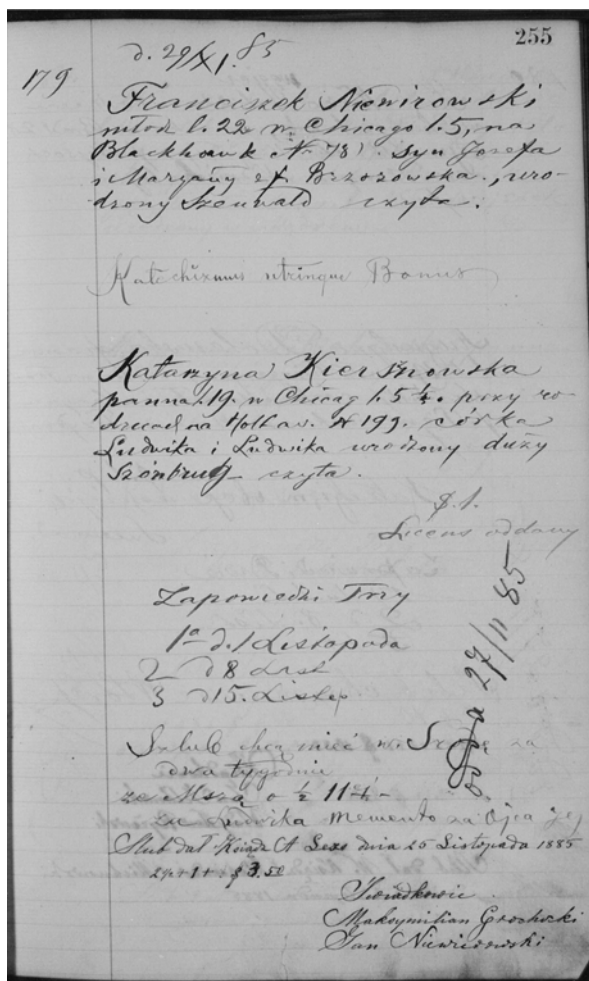 255
d. 29/XI.85
179
Franciszek Niewirowski
młodz l. 22 w Chicago l. 5, na
Blackhawk No 78). syn Jozefa
i Maryańy ef. Brzozowska., uro-
dzony Szenwald czyta.
Katechizmus utringue Bonus
Katarzyna Kierśznowska
panna l. 19. w Chicag l. 5 1/4. przy ro-
dzicach na Holt av. # 199. córka
Ludwika i Ludwika urodzony duzy
Szónbruy czyta.
$.1.
Licens oddany
Zapowiedzi Trzy
1o d. 1 Listopada
2 d 8 List
3 d 15. Listop
27/11 85
Szlub chcą mieć we Srodę za
dwa tygodnie
ze Mszą o 1/2 11 -
za Ludwika Memento za Ojca jej
Slub dał Ksiądz A Sexo dnia 25 Listopada 1885
$3.50
Swiadkowie
Maksymilian Grochocki
Jan Niewierowski